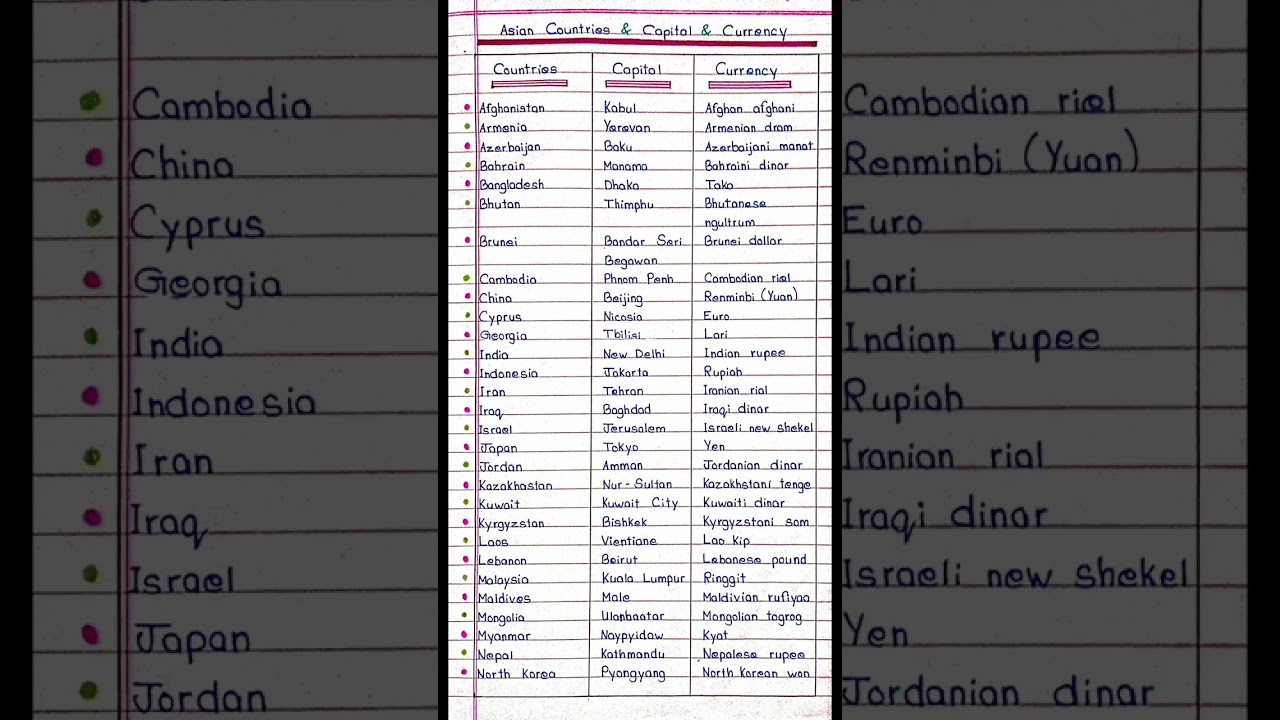 Asian Countries & Capital & Currency
Countries Capital Currency
Afghanistan Kabul Afghan afghani
Armenia Yerevan Armenian dram
Azerbaijan Baku Azerbaijani manat
Bahrain Manama Bahraini dinar
Bangladesh Dhaka Taka
Bhutan Thimphu Bhutanese
ngultrum
Brunei Bandar Seri Brunei dollar
Begawan
Cambodia Phnom Penh Cambodian riel
China Beijing Renminbi (Yuan)
Cyprus Nicosia Euro
Georgia Tbilisi Lari
India New Delhi Indian rupee
Indonesia Jakarta Rupiah
Iran Tehran Iranian rial
Iraq Baghdad Iraqi dinar
Israel Jerusalem Israeli new shekel
Japan Tokyo Yen
Jordan Amman Jordanian dinar
Kazakhastan Nur-Sultan Kazakhstani tenge
Kuwait Kuwait City Kuwaiti dinar
Kyrgyzstan Bishkek Kyrgyzstani som
Laos Vientiane Lao kip
Lebanon Beirut Lebanese pound
Malaysia Kuala Lumpur Ringgit
Maldives Male Maldivian rufiyaa
Mongolia Ulanbaatar Mongolian togrog
Myanmar Naypyidaw Kyat
Nepal Kathmandu Nepalese rupee
North Korea Pyongyang North Korean won
Cambodia
China
Cyprus
Georgia
India
Indonesia
Iran
Iraq
Israel
Japan
Jordan
Cambodian riel
Renminbi (Yuan)
Euro
Lari
Indian rupee
Rupiah
Iranian rial
Iraqi dinar
Israeli new shekel
Yen
Jordanian dinar